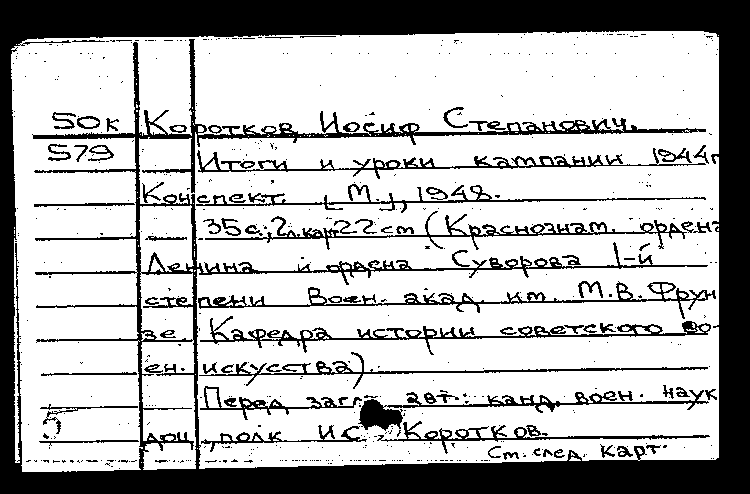 50к Коротков, Иосиф Степанович.
579 Итоги и уроки кампании 1944г
Конспект. [М.], 1948.
35с.; 2л.карт 22 см (Краснознам. ордена
Ленина и ордена Суворова I-й
степени Воен. акад. им. М.В. Фрун
зе. Кафедра истории советского во-
ен. искусства).
Перед загл. авт.: канд. воен. наук
5 доц., полк И.С. Коротков.
См. след. карт.